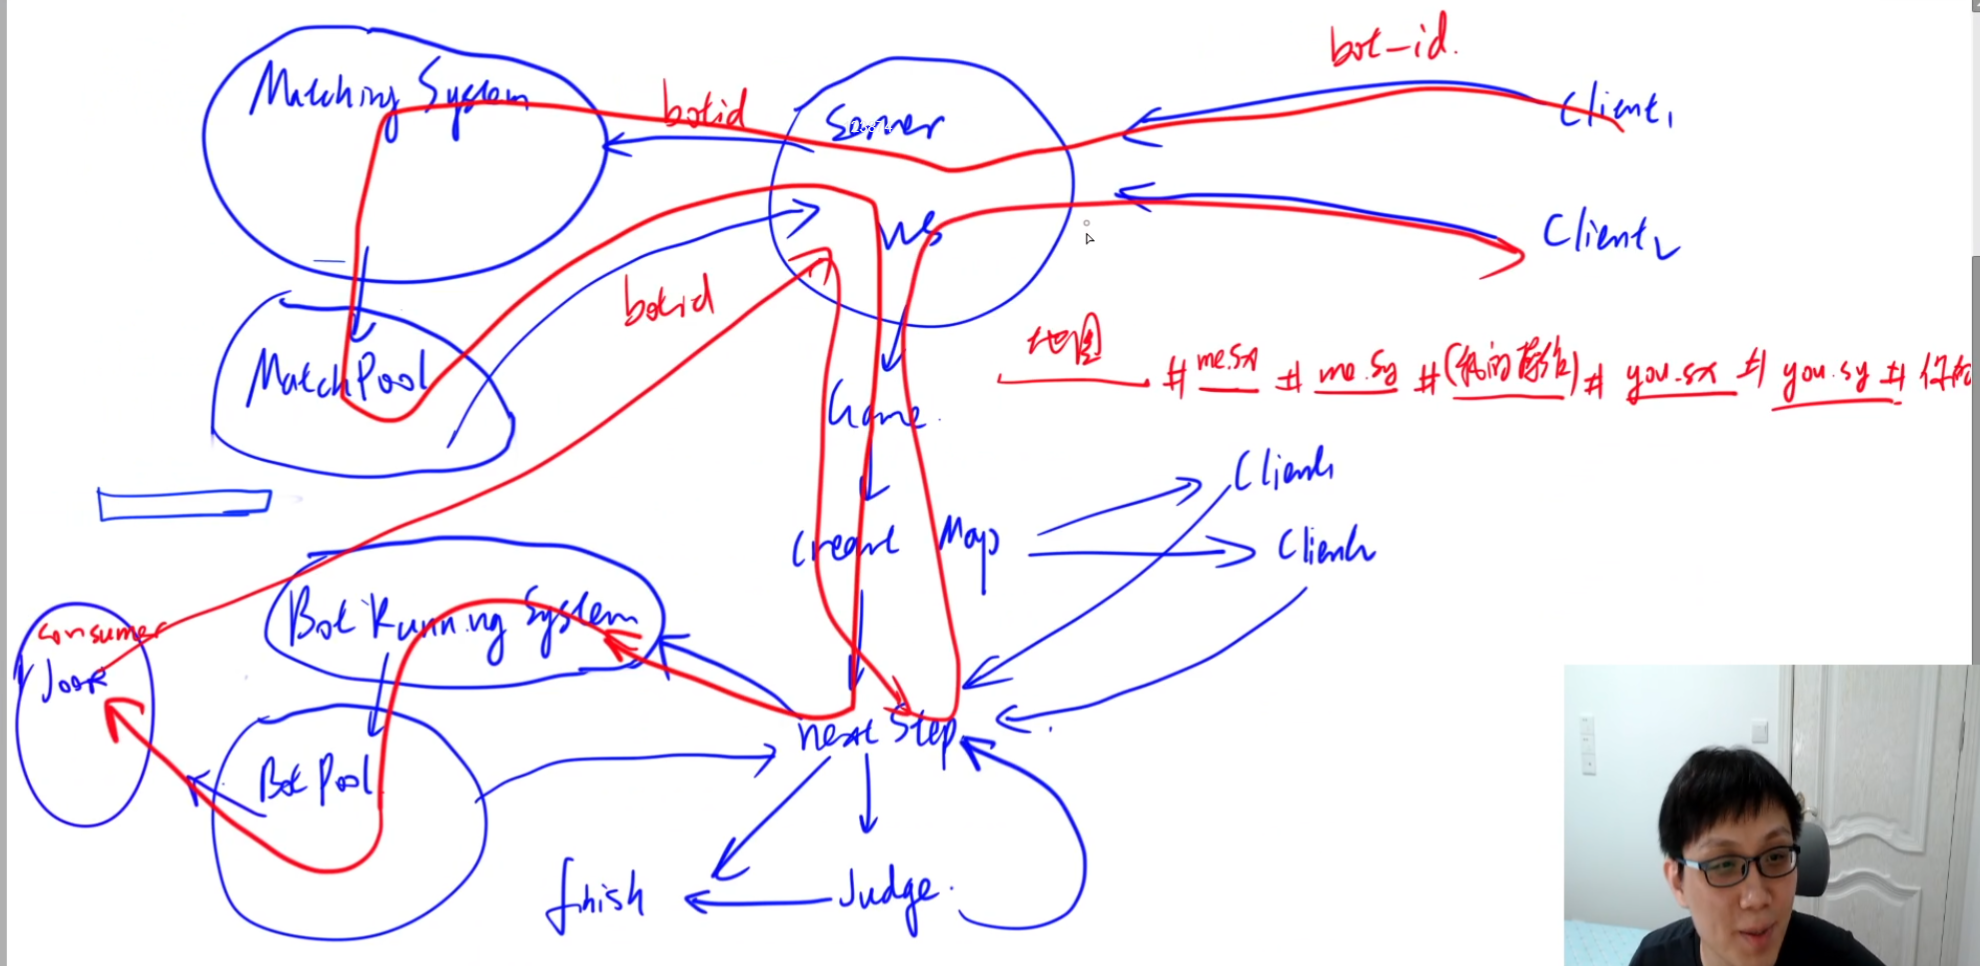 bot-id.
Matching System
botid
Server
Client1
ws
Client2
botid
地图 #me.sx #me.sy #(我的操作)# you.sx # you.sy # 你的
MatchPool
Game.
Client1
Create Map
Client2
Bot Running System
Consumer
next Step
Bot Pool
finish
Judge.